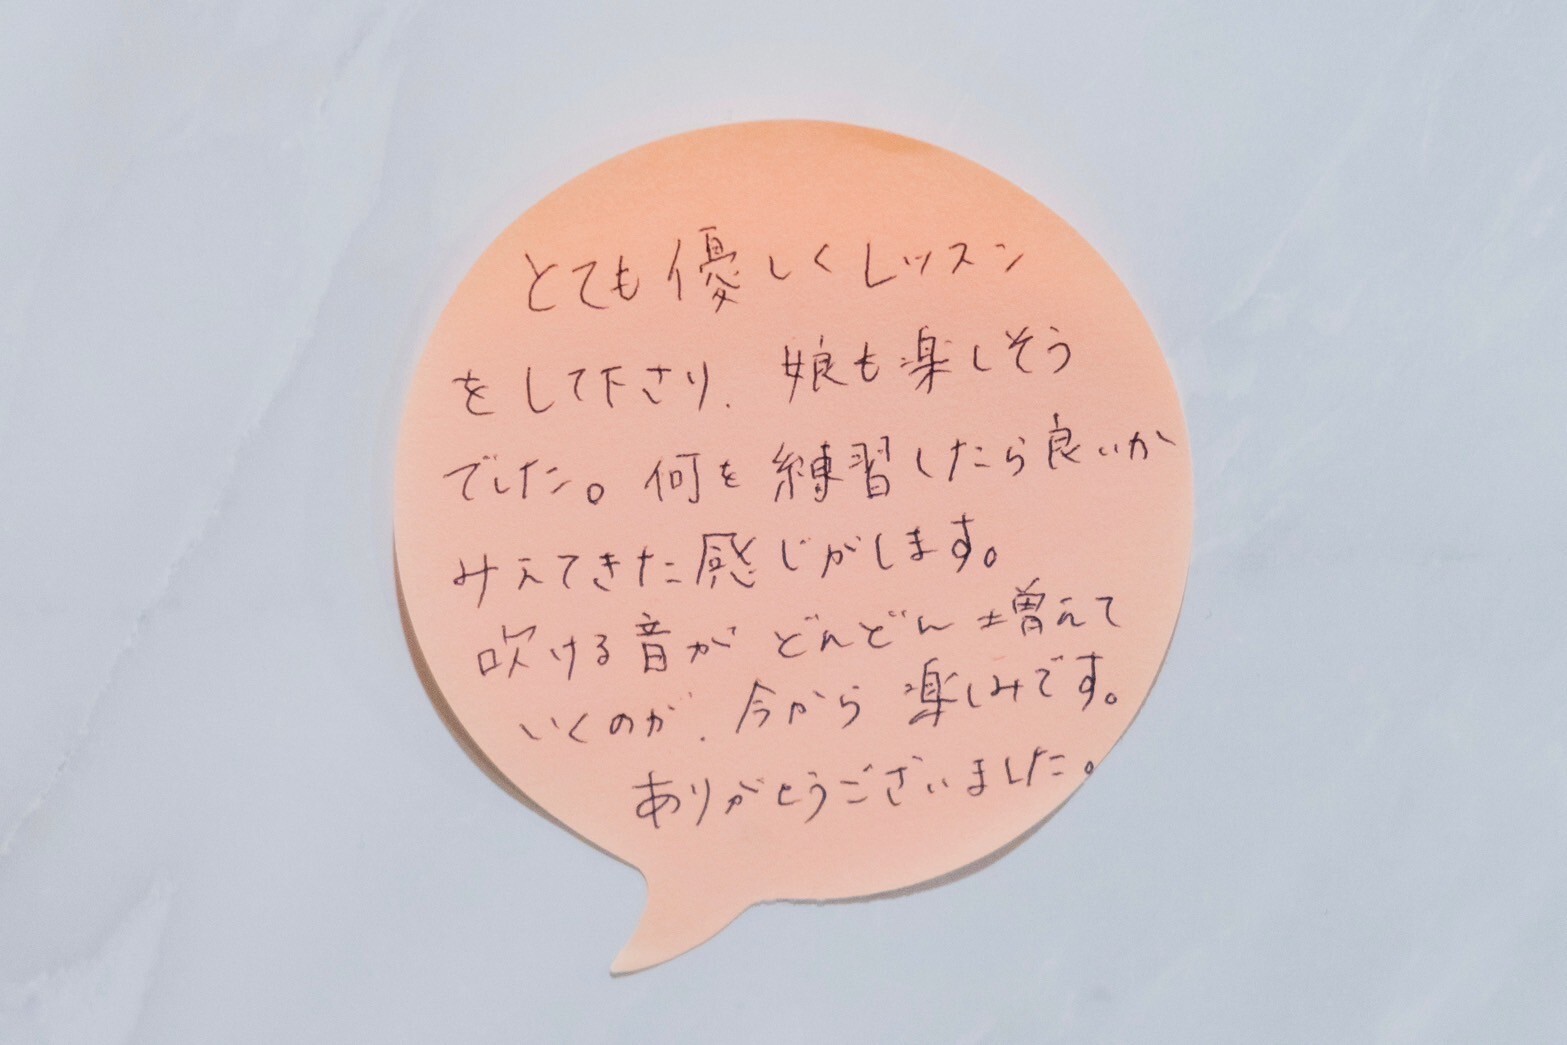 とても優しくレッスン
をして下さり、娘も楽しそう
でした。何を練習したら良いか
みえてきた感じがします。
吹ける音がどんどん増えて
いくのが、今から楽しみです。
ありがとうございました。